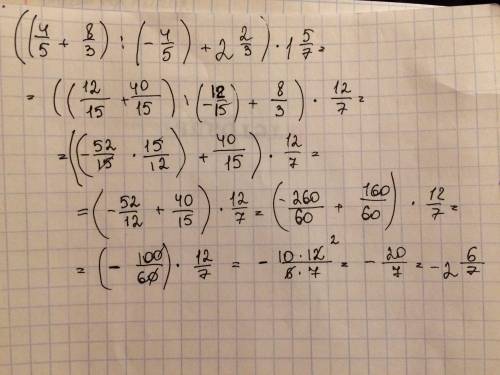 ((4/5 + 8/3) : (-4/5) + 2 2/3) · 1 5/7 =
= ((12/15 + 40/15) : (-12/15) + 8/3) · 12/7 =
= ((-52/15 · 15/12) + 40/15) · 12/7 =
= (-52/12 + 40/15) · 12/7 = (-260/60 + 160/60) · 12/7 =
= (-100/60) · 12/7 = - 10·12 2/6·7 = - 20/7 = -2 6/7